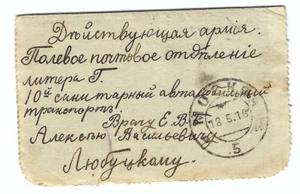 Дѣйствующая армія.
Полевое почтовое отдѣленіе
литера Г.
10й санитарный автомобильный
транспортъ.
Врачу Е.В.
Алексѣю Васильевичу
Любуцкому.
18 5 16
5